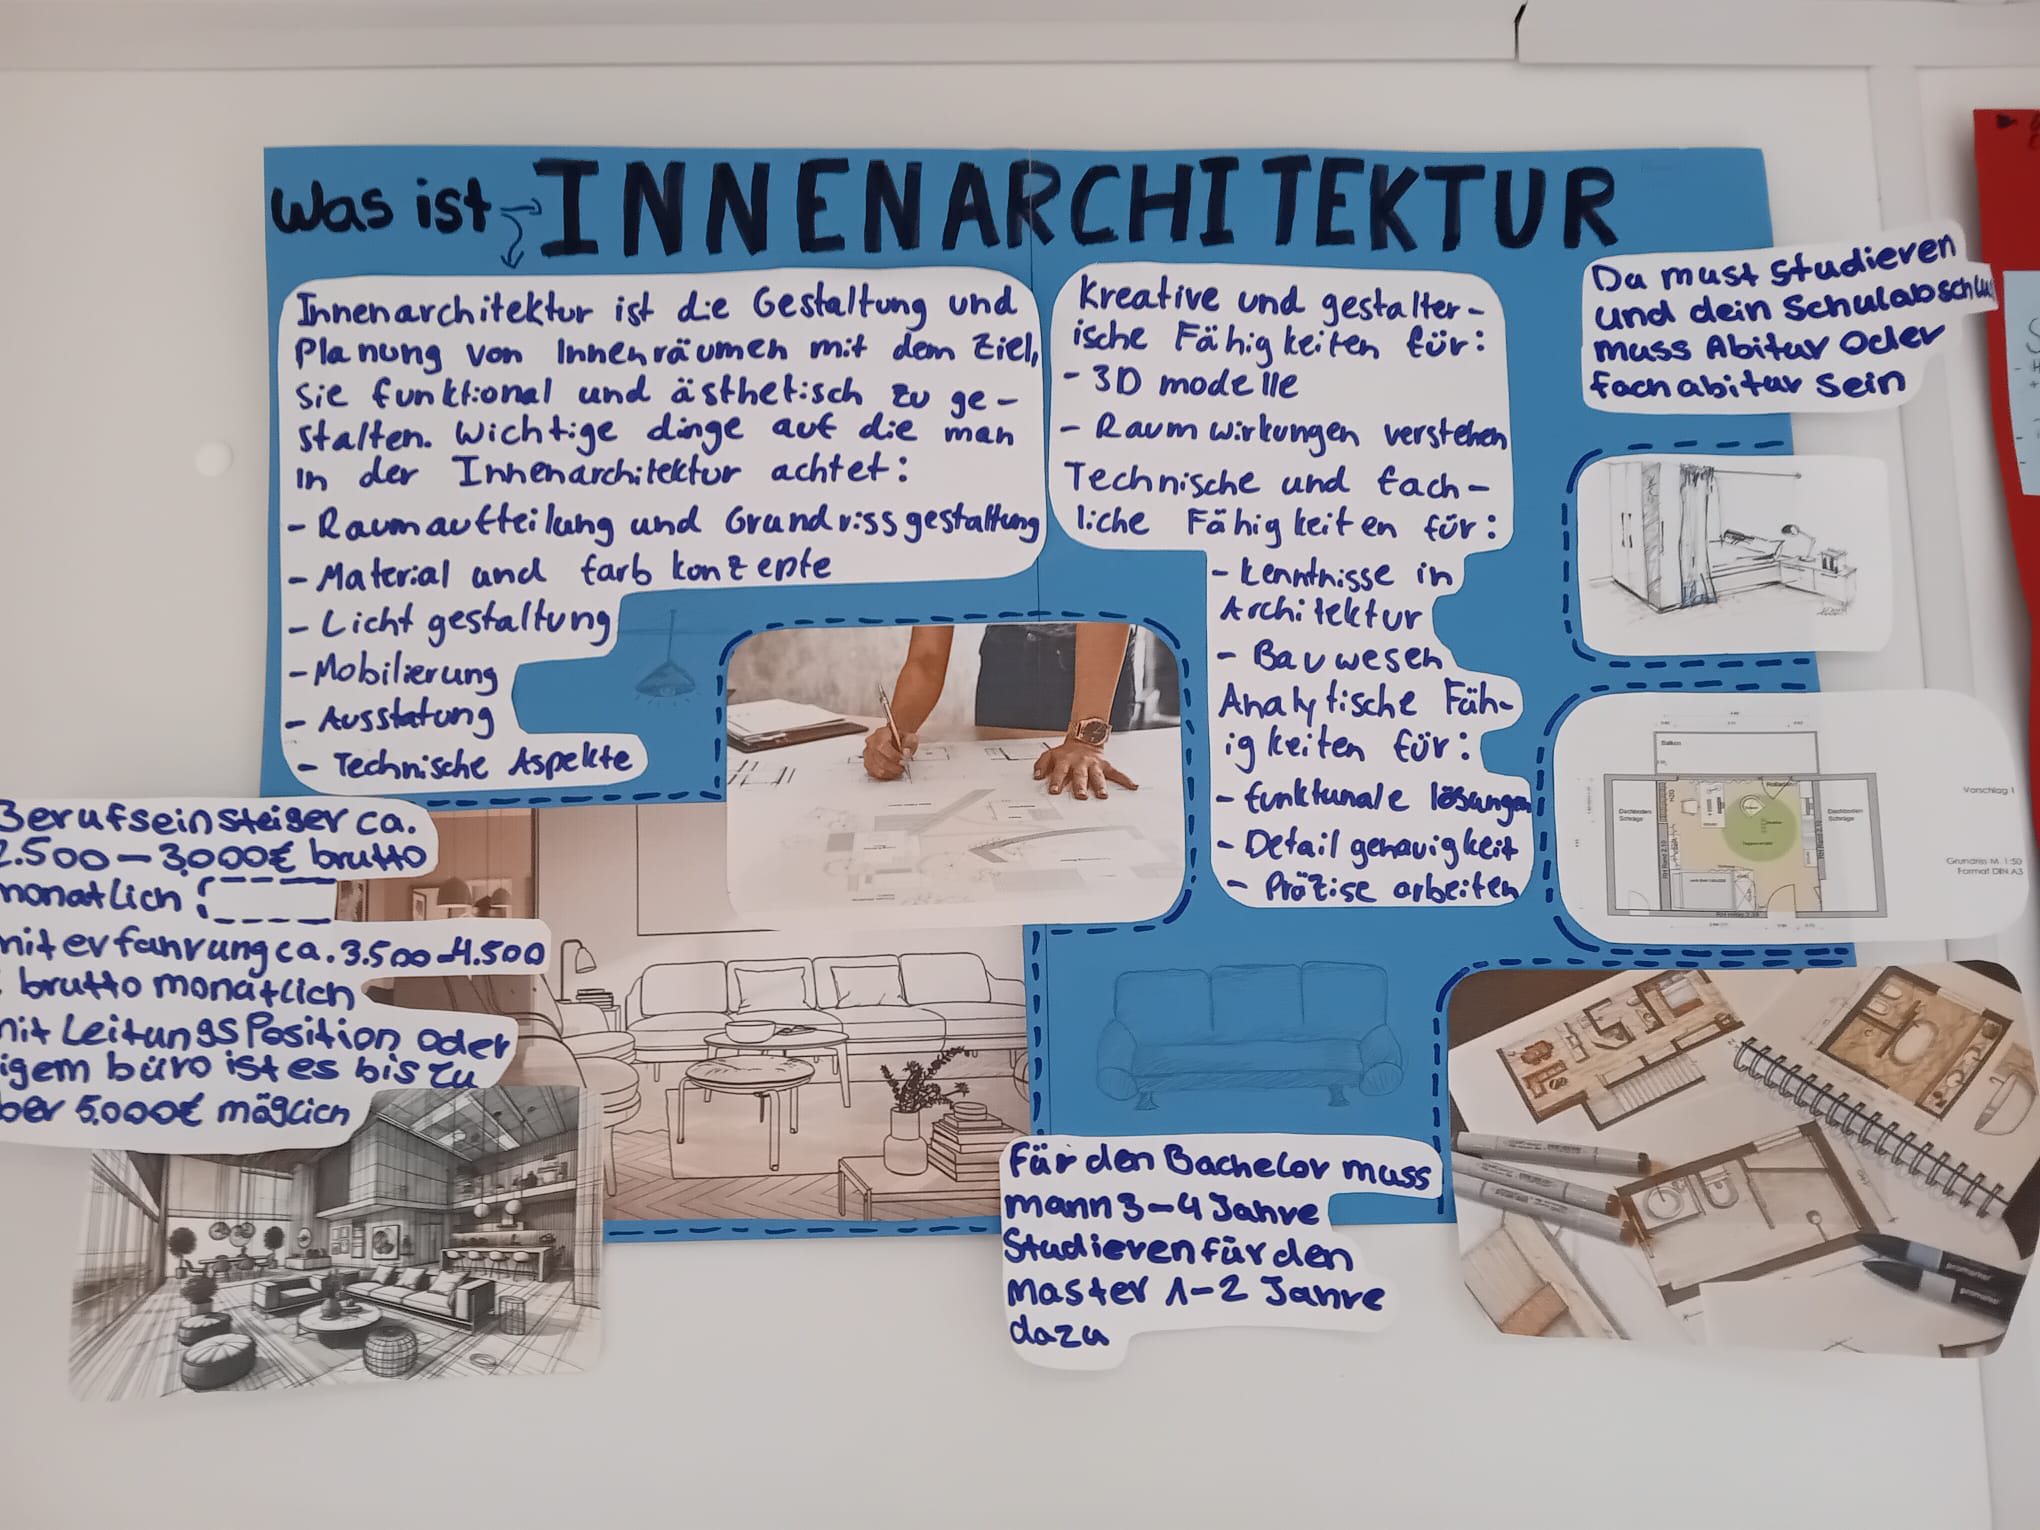 Was ist INNENARCHITEKTUR
Innenarchitektur ist die Gestaltung und
Planung von Innenräumen mit dem Ziel,
sie funktional und ästhetisch zu ge-
stalten. Wichtige dinge auf die man
in der Innenarchitektur achtet:
- Raumaufteilung und Grundrissgestaltung
- Material und farb konzepte
- Licht gestaltung
- Mobilierung
- Ausstatung
- Technische Aspekte
Kreative und gestalter-
ische Fähigkeiten für:
- 3D modelle
- Raum wirkungen verstehen
Technische und fach-
liche Fähigkeiten für:
- kenntnisse in
Architektur
- Bauwesen
Analytische Fäh-
igkeiten für:
- funktunale lösungen
- Detail genauigkeit
- Präzise arbeiten
Da must studieren
und dein Schulabschluss
muss Abitur Oder
fachabitur sein
Balkon
Dachboden
Schräge
Dachboden
Schräge
Vorschlag 1
Grundriss M 1:50
Format DIN A3
Berufseinsteiger ca.
2.500 - 3,000€ brutto
monatlich
mit erfahrung ca. 3.500-4.500
brutto monatlich
mit Leitungs Position oder
igem büro ist es bis zu
ber 5,000€ möglich
Für den Bachelor muss
mann 3-4 Jahre
Studieren für den
Master 1-2 Jahre
dazu
promarker
promarker